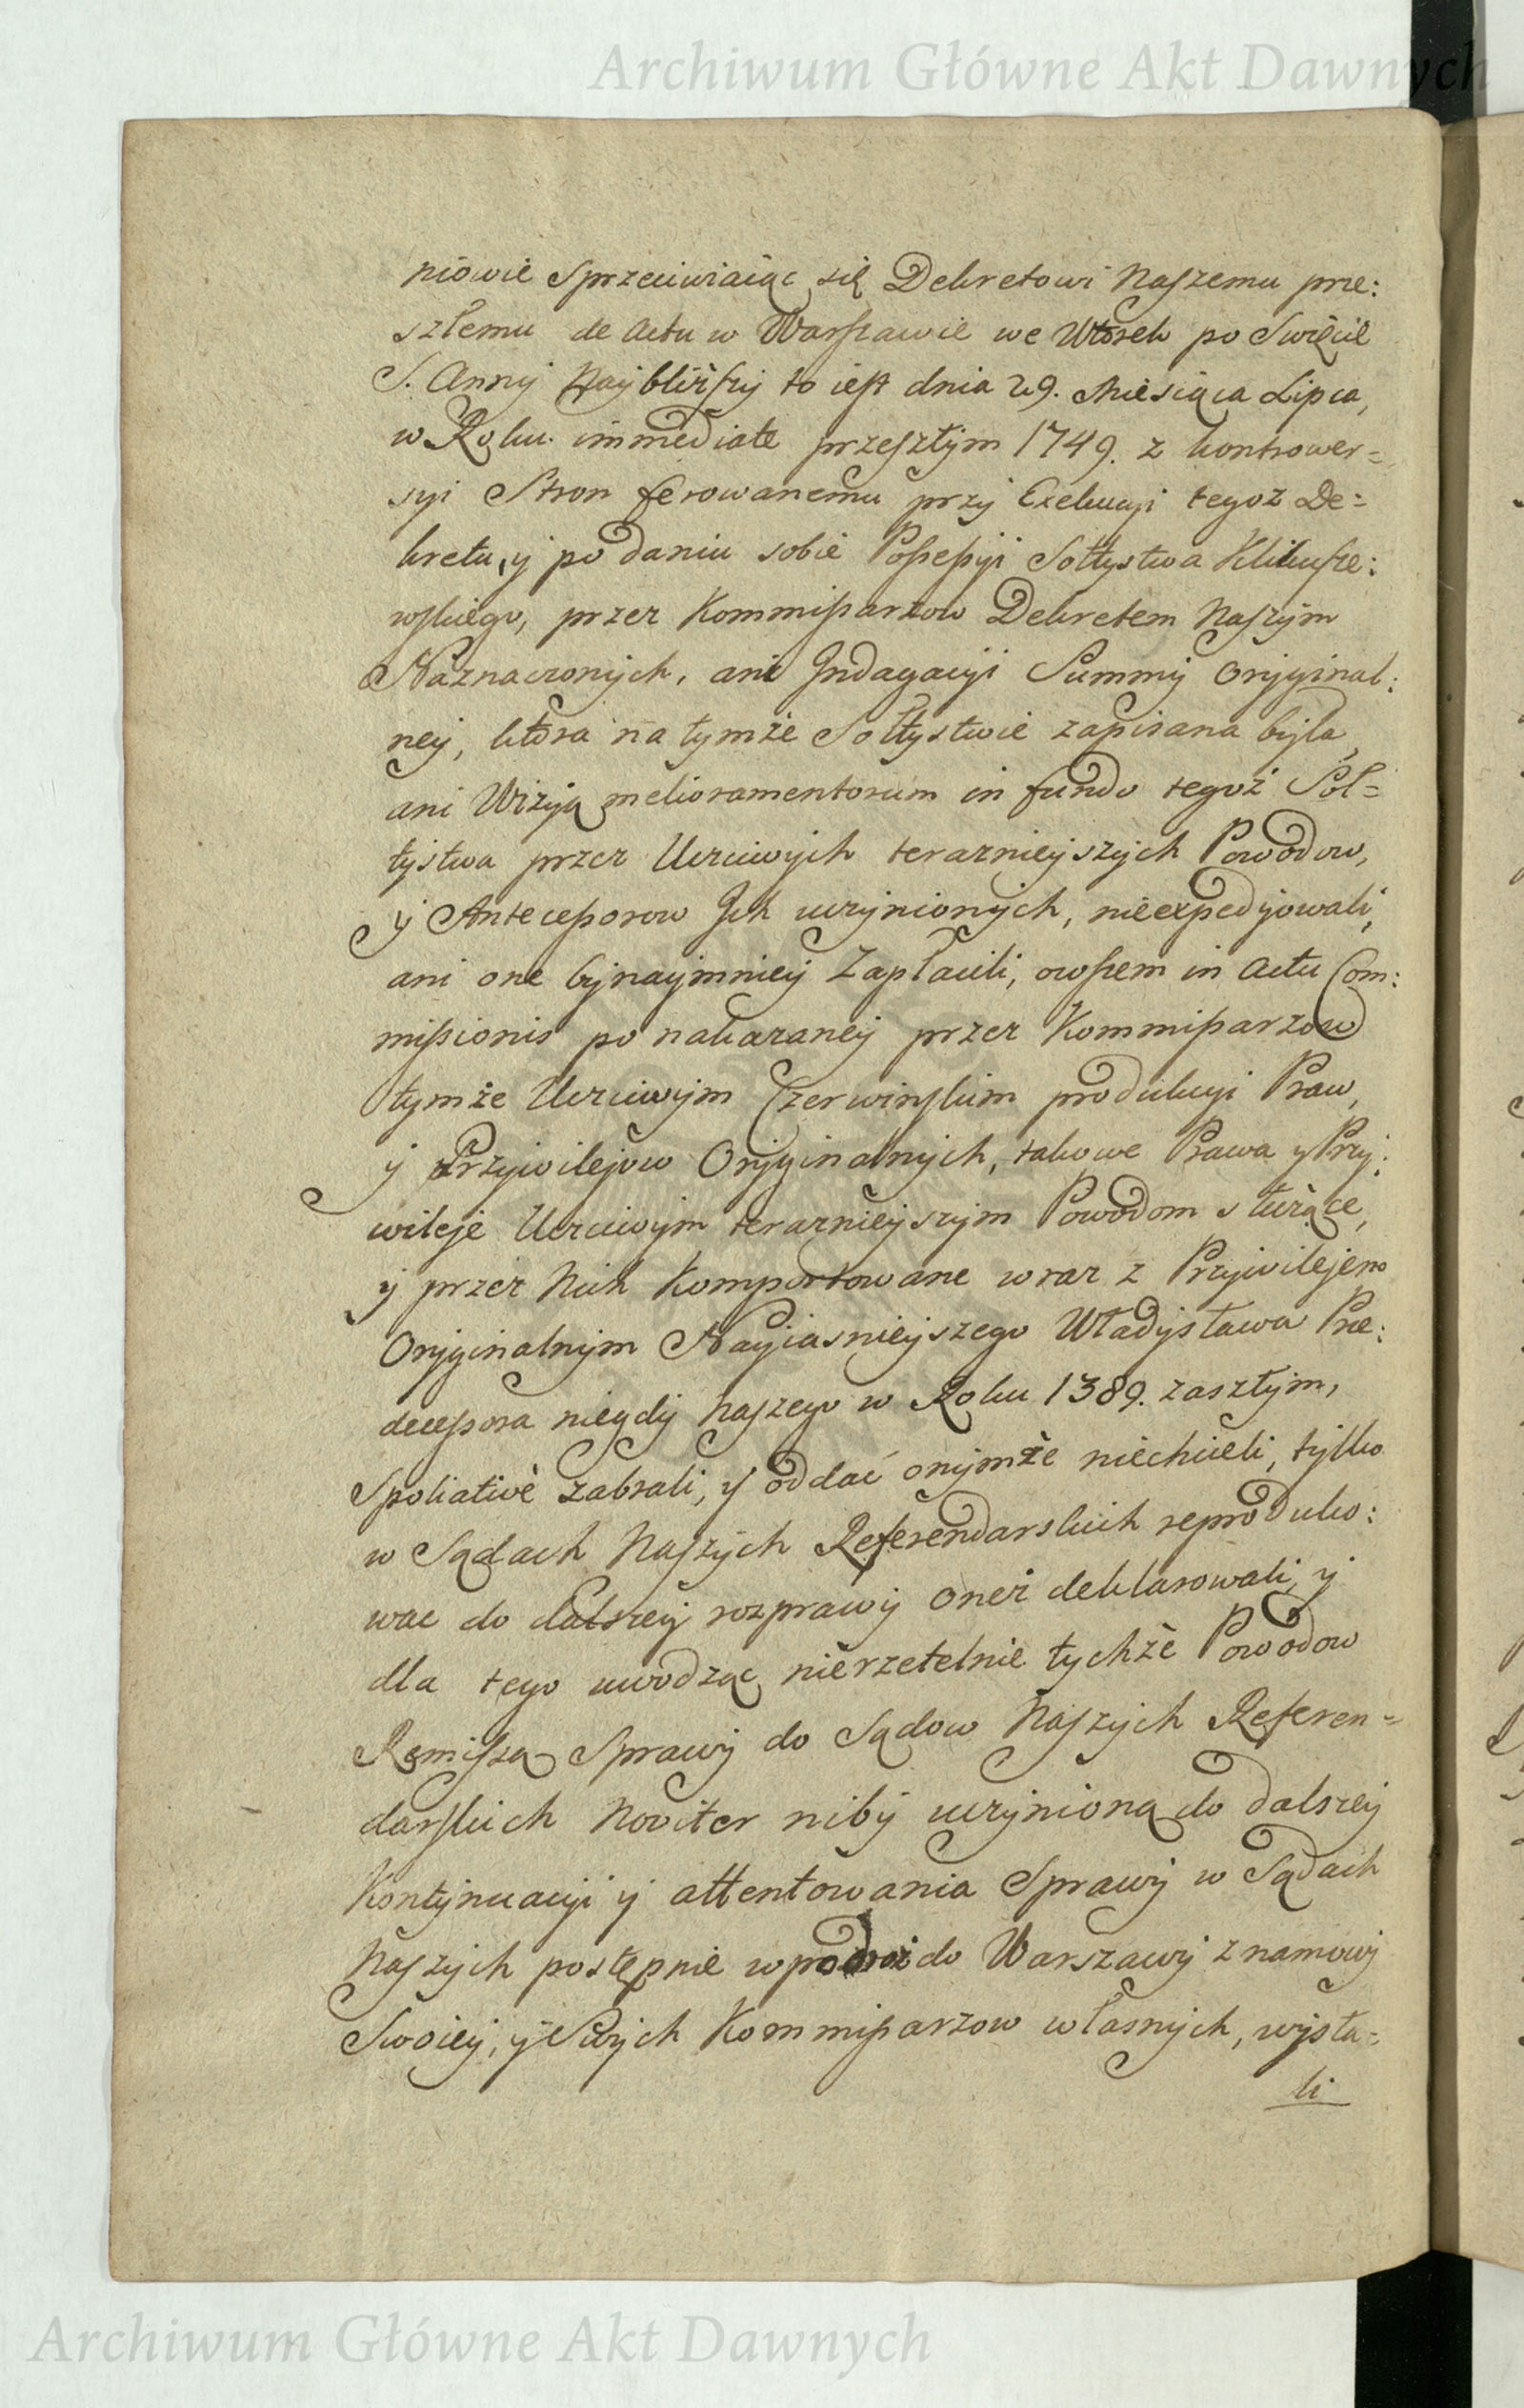 Archiwum Główne Akt Dawnych
niowie Sprzeciwiaiąc się Dekretowi Naszemu prze:
szłemu de Actu w Warszawie we Wtorek po Swięcie
S. Anny Nayblizszy to iest dnia 29. Miesiąca Lipca,
w Roku immediate przeszłym 1749. z kontrower=
syi Stron ferowanemu przy Exekucyi tegoż De=
kretu, y po daniu sobie Possessyi Sołtystwa Klikusze:
wskiego, przez Kommissarzow Dekretem Naszym
Naznaczonych, ani Indagacyi Summy Oryginal:
ney, ktora na tymże Sołtystwie zapisana była,
ani Wizyą melioramentorum in fundo tegoż Soł=
tystwa przez Uczciwych teraznieyszych Powodow,
y Antecessorow Ich uczynionych, nieexpedyowali,
ani one bynaymniey Zapłacili, owszem in Actu Com:
missionis po nakazaney przez Kommissarzow
tymże Uczciwym Czerwinskim produkcyi Praw,
y Przywilejow Oryginalnych, takowe Prawa y Przy:
wileje Uczciwym teraznieyszym Powodom służące,
y przez Nich Komportowane wraz z Przywilejem
Oryginalnym Nayiasnieyszego Władysława Prae:
decessora niegdy Naszego w Roku 1389. zaszłym,
Spoliativè zabrali, y oddać onymże niechcieli, tylko
w Sądach Naszych Referendarskich reproduko:
wac do dalszey rozprawy oneż deklarowali, y
dla tego uwodząc nierzetelnie tychże Powodow
Remissą Sprawy do Sądow Naszych Referen=
darskich Noviter niby uczynioną do dalszey
Kontynuacyi y attentowania Sprawy w Sądach
Naszych postępnie w podroż do Warszawy z namowy
Swoiey, y Swych Kommissarzow własnych, wysła=
li
Archiwum Główne Akt Dawnych